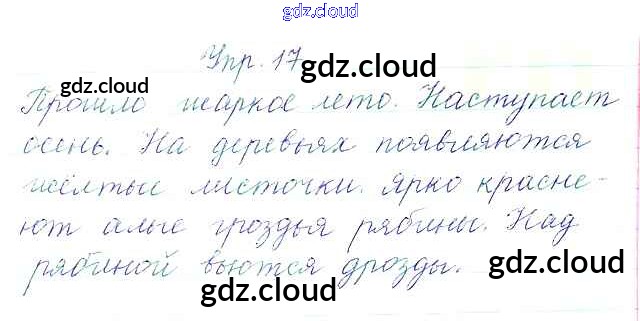 gdz.cloud
Упр. 17 gdz.cloud
gdz.cloud
Прошло жаркое лето. Наступает
осень. На деревьях появляются
жёлтые листочки. Ярко красне-
ют алые гроздья рябины. Над
рябиной вьются дрозды. gdz.cloud
gdz.cloud